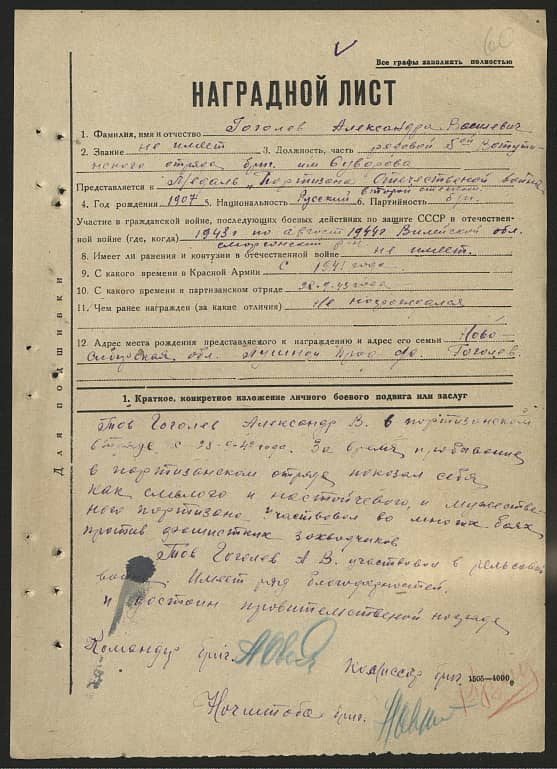 60
Все графы заполнять полностью
НАГРАДНОЙ ЛИСТ
1. Фамилия, имя и отчество Гоголев Александр Василевич
2. Звание не имеет 3. Должность, часть рядовой 5ой Ватути-
нского отряда бриг. им Суворова
Представляется к „Медаль "Партизана Отечественой война
второй степени
4. Год рождения 1907 5. Национальность Русский 6. Партийность б/п.
Участие в гражданской войне, последующих боевых действиях по защите СССР и отечествен-
ной войне (где, когда) 1943г по август 1944г Вилейской обл.
сморгонский р-н
8. Имеет ли ранения и контузии в отечественной войне не имеет.
9. С какого времени в Красной Армии с 1941 года
10. С какого времени в партизанском отряде
11. Чем ранее награжден (за какие отличия) Не награждался
12. Адрес места рождения представляемого к награждению и адрес его семьи Ново-
Сибирская обл. Гоголев.
Для подшивки
1. Краткое, конкретное изложение личного боевого подвига или заслуг
Тов Гоголев Александр В. в партизанском
отряде с За время пребывания
в партизанском отряде показал себя
как смелого и настойчевого, и мужестве-
ного партизана участвовал во многих боях
против фашистких захвадчиков
Тов Гоголев А В. участвовал в рельсовой
войне. Имеет ряд благодарностей.
и достоин провительственой награде
Командир бриг.
Комиссар бриг 1505—4000
Ночштаба бриг.